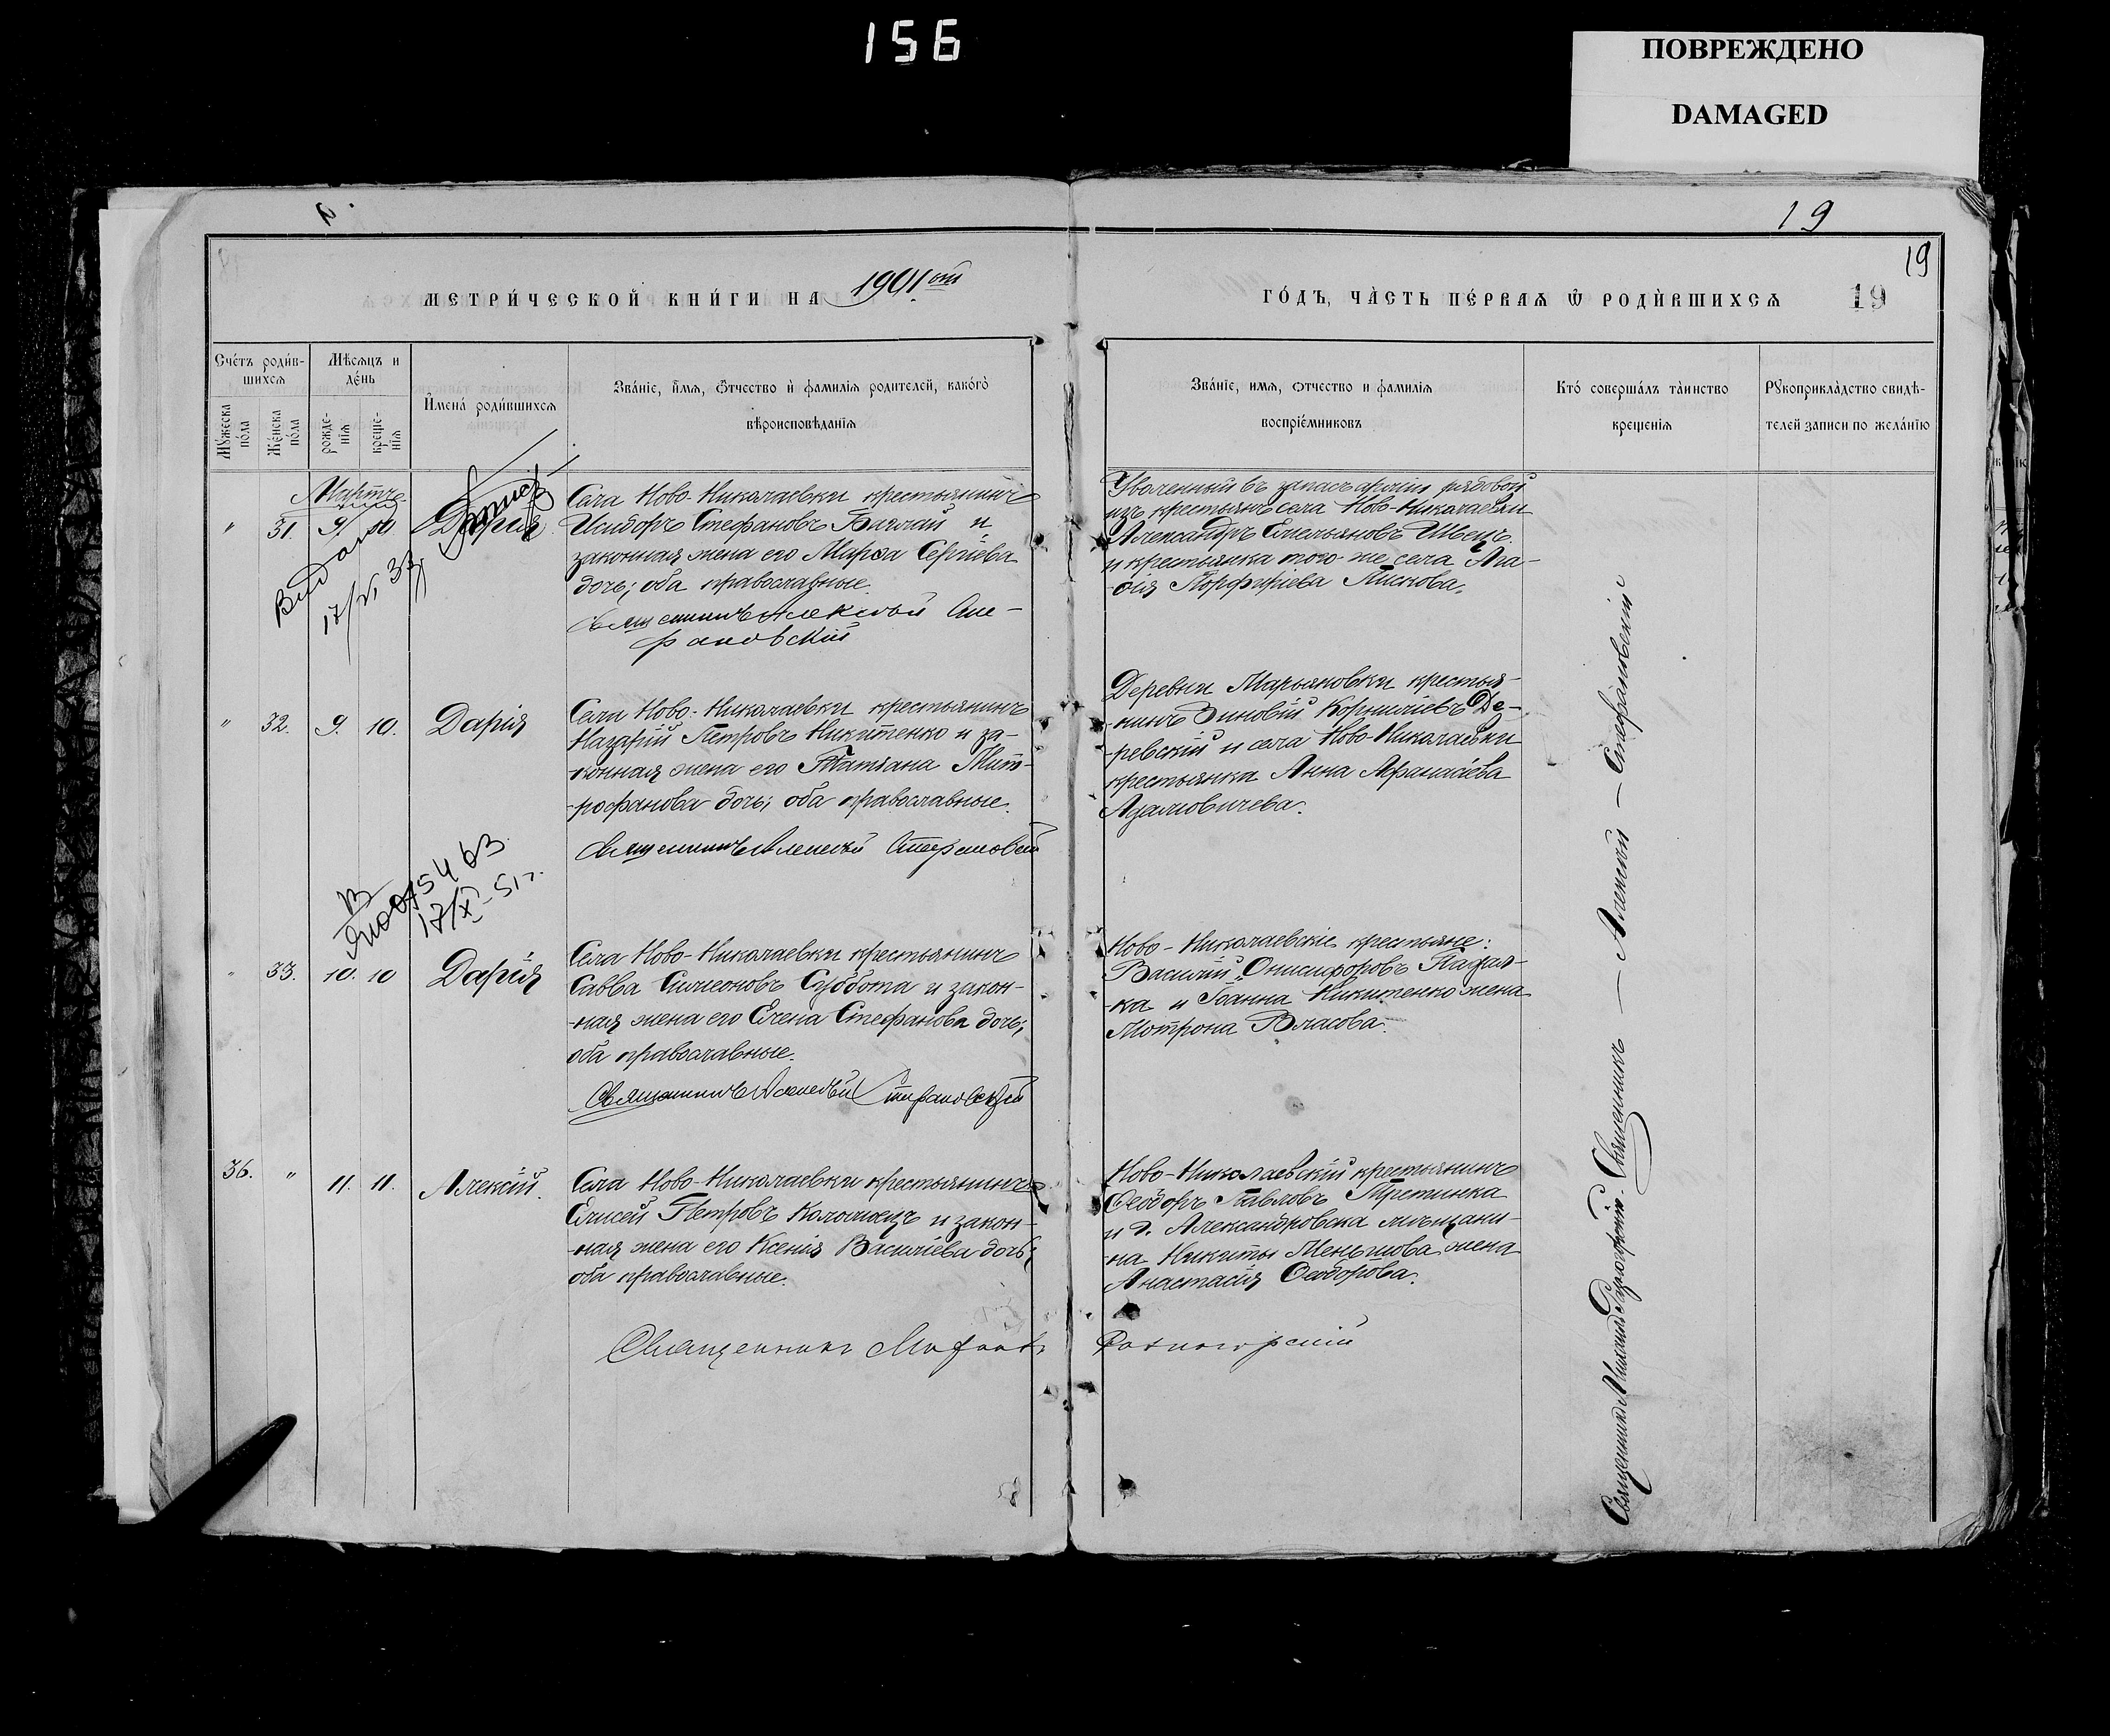 156
ПОВРЕЖДЕНО
DAMAGED
19
19
МЕТРИ́ЧЕСКОЙ КНИ́ГИ НА 1901ый
ГО́ДЪ, ЧА̀СТЬ ПЕ́РВАѦ Ѿ РОДЍВШИХСѦ 19
Сче́тъ роди́в-
шихсѧ
Мѣсѧцъ и
де́нь
Мꙋжеска
по́ла
Же́нска
по́ла
рожде-
нїѧ
креще-
нїѧ
И҆мена́ роди́вшихсѧ
Зва́нїе, и҆́мѧ, ѻ҆́тчество и҆ фамилїѧ родителей, како́гѡ
вѣроисповѣданїѧ
Зва́нїе, имѧ, ѻтчество и фамилїѧ
воспрїе́мниковъ
Кто́ соверша́лъ та̀инство
креще́нїѧ
Рꙋкоприкла̀дство свидѣ-
телей записи по жела́нїю
Марта
" 31. 9. 10. Дарія
17/VI 33
Села Ново-Николаевки крестьянинъ
Исидоръ Стефановъ Баглай и
законная жена его Марѳа Сергіева
дочь; оба православные.
Священникъ Алексѣй Сте-
фановскій
Уволенный въ запасъ арміи рядовой
изъ крестьянъ села Ново-Николаевки
Александръ Емельяновъ Швецъ
и крестьянка того-же села Ага-
ѳія Порфиріева Пискова.
" 32. 9. 10. Дарія
Села Ново-Николаевки крестьянинъ
Назарій Петровъ Никитенко и за-
конная жена его Татіана Мит-
рофанова дочь; оба православные.
Священникъ Алексѣй Стефановскій
Деревни Марьяновки крестья-
нинъ Зиновій Корниліевъ Де-
ревскій и села Ново-Николаевки
крестьянка Анна Аѳанасіева
Адамовичева.
17/XI-51г.
" 33. 10. 10 Дарія
Села Ново-Николаевки крестьянинъ
Савва Симеоновъ Суббота и закон-
ная жена его Елена Стефанова дочь;
оба православные.
Священникъ Алексѣй Стефановскій
Ново-Николаевскіе крестьяне:
Василій Онисифоровъ Падал-
ка и Іоанна Никитенко жена
Мотрона Власова.
36. " 11. 11. Алексій.
Села Ново-Николаевки крестьянинъ
Елисей Петровъ Коломоецъ и закон-
ная жена его Ксенія Василіева дочь;
оба православные.
Ново-Николаевскій крестьянинъ
Ѳеодоръ Павловъ Третинка
и г. Александровска мѣщани-
на Никиты Меньшова жена
Анастасія Ѳеодорова.
Священникъ
Священникъ — Алексѣй — Стефановскій